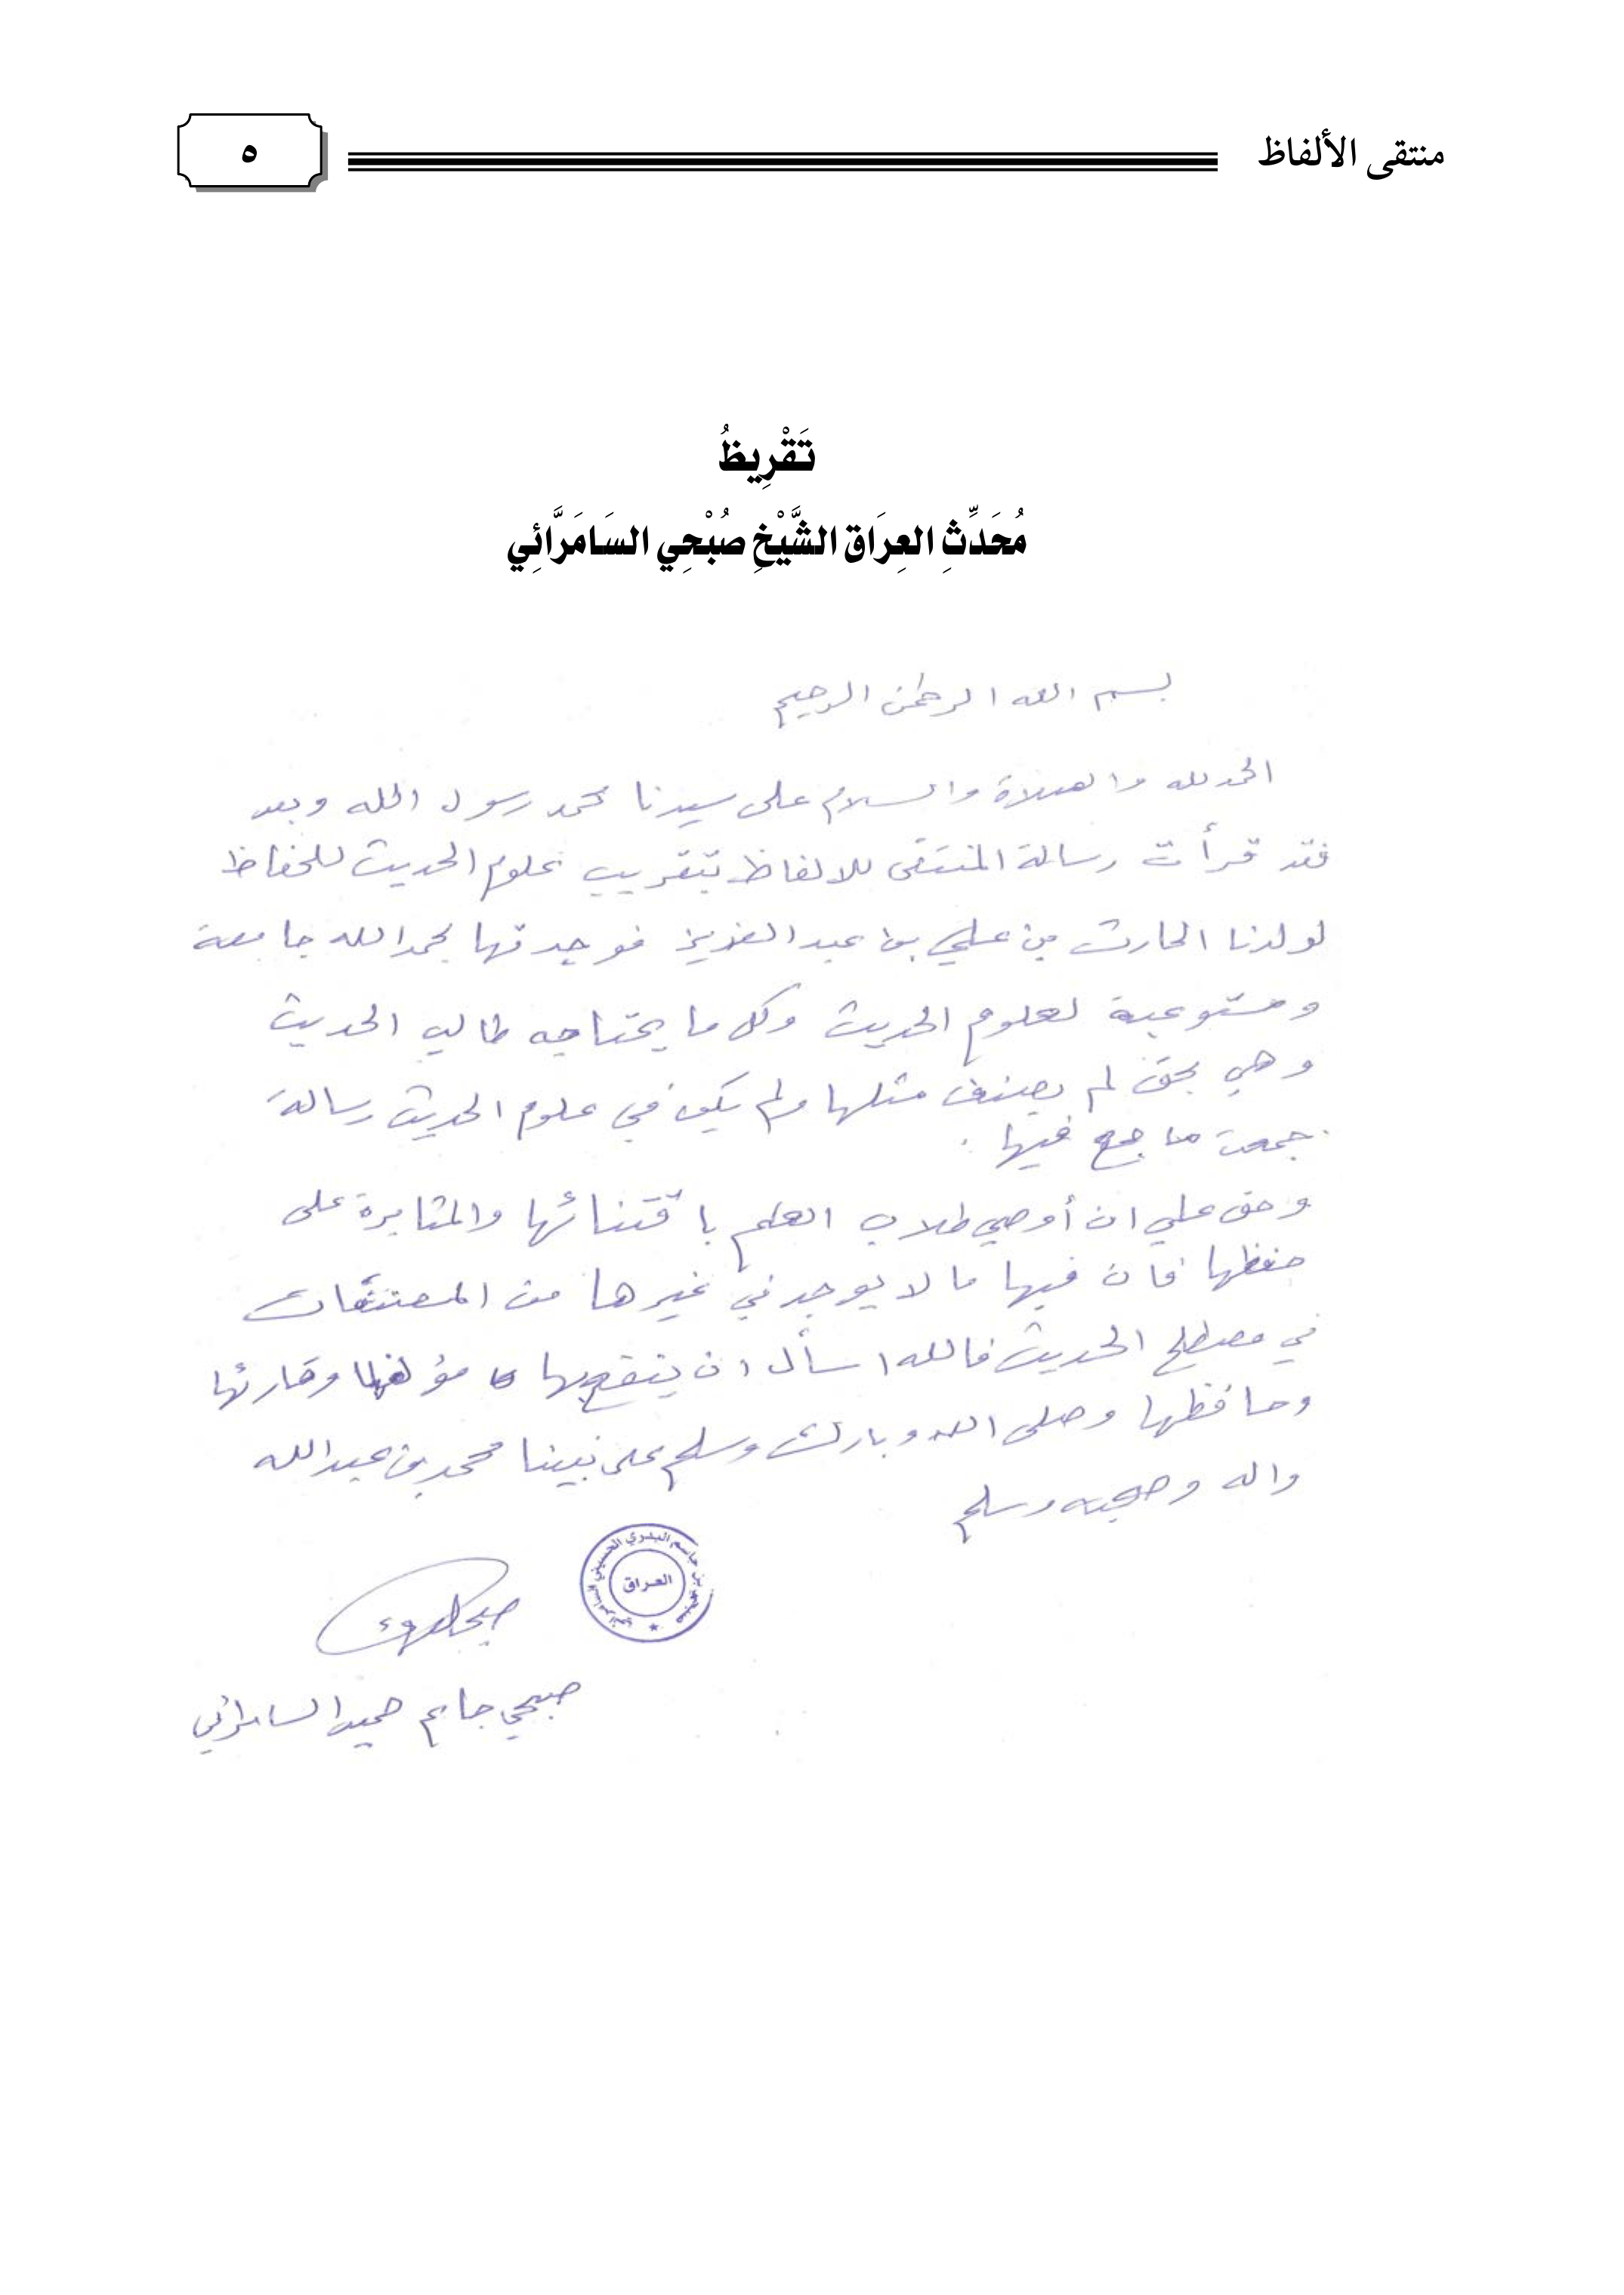 منتقى الألفاظ
٥
تَقْرِيظُ
مُحَدِّثِ العِرَاق الشَّيْخِ صُبْحِي السَامَرَّائِي
بسم الله الرحمن الرحيم
الحمد لله والصلاة والسلام على سيدنا محمد رسول الله وبعد
فقد قرأت رسالة المنتقى للالفاظ بتقريب علوم الحديث للحفاظ
لولدنا الحارث بن علي بن عبد العزيز فوجدتها بحمد الله جامعة
ومستوعبة لعلوم الحديث وكل ما يحتاجه طالب الحديث
وهي بحق لم يصنف مثلها ولم يكن في علوم الحديث رسالة
جمعت ما جمع فيها .
وحق علي ان أوصي طلاب العلم باقتنائها والمثابرة على
حفظها فان فيها ما لا يوجد في غيرها من المصنفات
في مصطلح الحديث فالله اسأل ان ينفع بها مؤلفها وقارئها
وحافظها وصلى الله وبارك وسلم على نبينا محمد بن عبد الله
واله وصحبه وسلم
صبحي بن جاسم البدري الحسيني السامرائي
العراق
صبحي جاسم حميد السامرائي